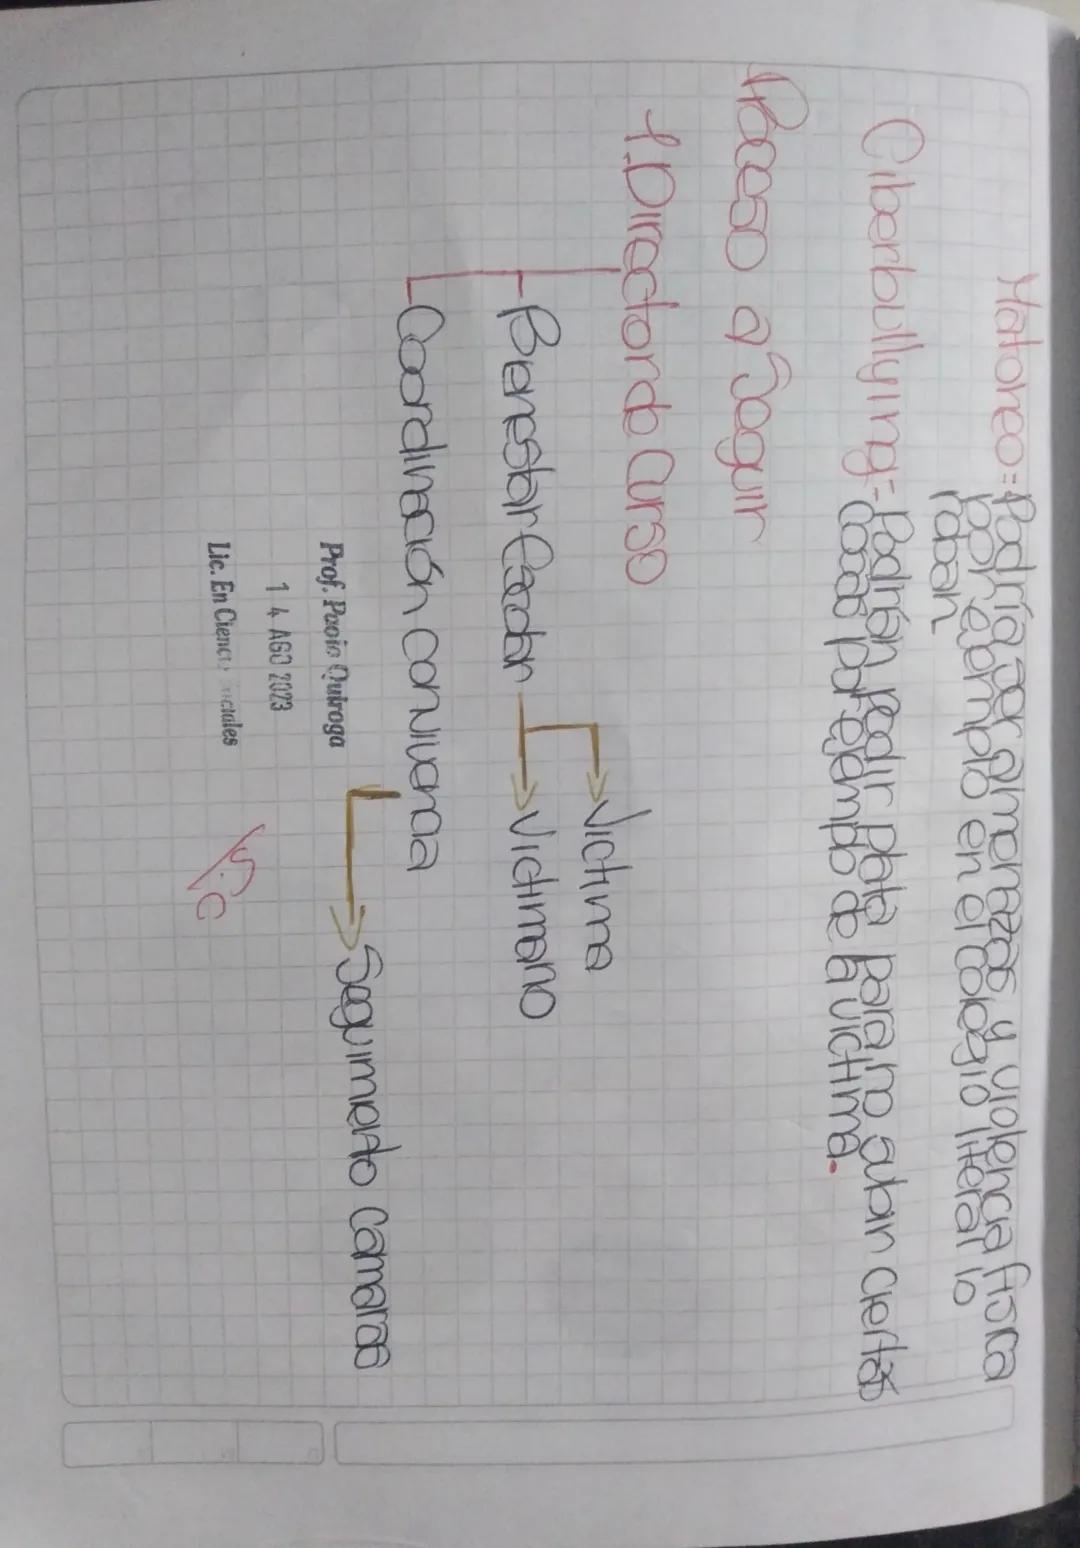 Matoneo = Podría ser amenazas y violencia física
por ejemplo en el colegio literal lo
roban
Ciberbullying = Podrían pedir plata para no subir ciertas
cosas por ejemplo de la victima.
Proceso a Seguir
1. Director de Curso
Bienestar Escolar
Victima
Victimario
Coordinación convivencia
Seguimiento Camaras
Prof. Paola Quiroga
14 AGO 2023
Lic. En Ciencias Sociales